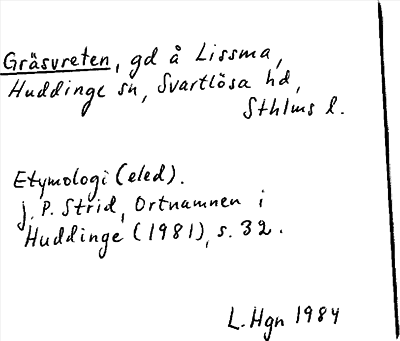 Gräsvreten, gd å Lissma,
Huddinge sn, Svartlösa hd,
Sthlms l.
Etymologi (eled).
J. P. Strid, Ortnamnen i
Huddinge (1981), s. 32.
L. Hgn 1984